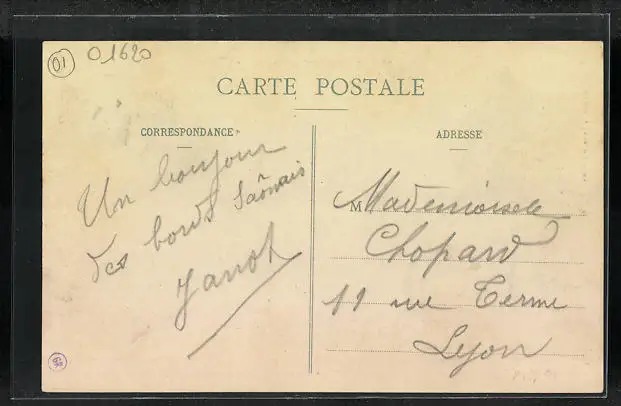 01
01620
CARTE POSTALE
CORRESPONDANCE
ADRESSE
Un bonjour
des bords Saônais
Jarrot
Mademoiselle
Chopard
11 rue Terme
Lyon